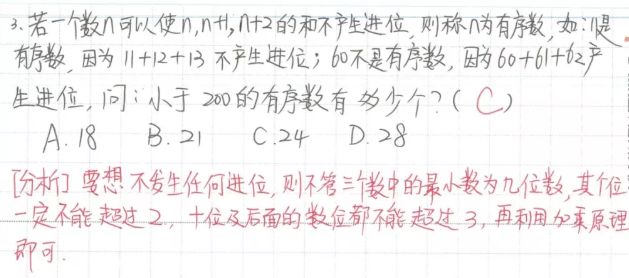 3.若一个数n可以使n,n+1,n+2的和不产生进位,则称n为有序数,如:11是
有序数,因为11+12+13不产生进位;60不是有序数,因为60+61+62产
生进位,问:小于200的有序数有多少个?(C)
A.18 B.21 C.24 D.28
[分析]要想不发生任何进位,则不管三个数中的最小数为几位数,其个位
一定不能超过2,十位及后面的数位都不能超过3,再利用加乘原理
即可.